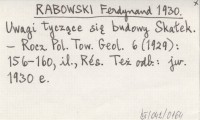 RABOWSKI Ferdynand 1930.
Uwagi tyczące się budowy Skałek.
– Rocz. Pol. Tow. Geol. 6 (1929):
156-160, il., Rés. Też odb: jw.
1930 e.